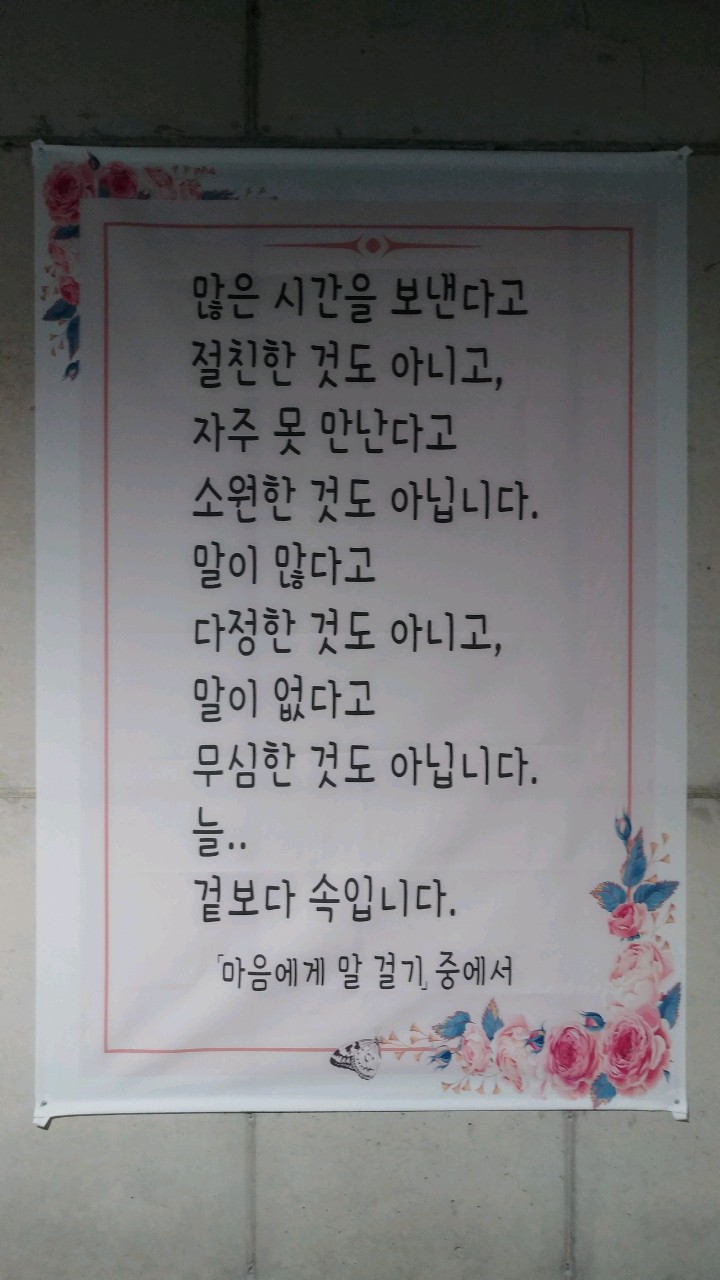 많은 시간을 보낸다고
절친한 것도 아니고,
자주 못 만난다고
소원한 것도 아닙니다.
말이 많다고
다정한 것도 아니고,
말이 없다고
무심한 것도 아닙니다.
늘..
겉보다 속입니다.
「마음에게 말 걸기」 중에서